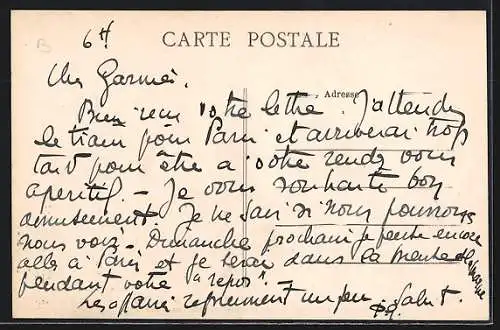 B
6 H
CARTE POSTALE
Adresse
Cher
Bien reçu votre lettre. J'attends
le train pour Paris et arriverai trop
tard pour être a votre rendez vous
aperitif. - Je vous souhaite bon
amusement. Je ne sais si nous pourrons
nous voir. Dimanche prochain je pense encore
aller à Paris et je serai dans la
pendant votre "repos".
Les affaires reprennent un peu. Salut.